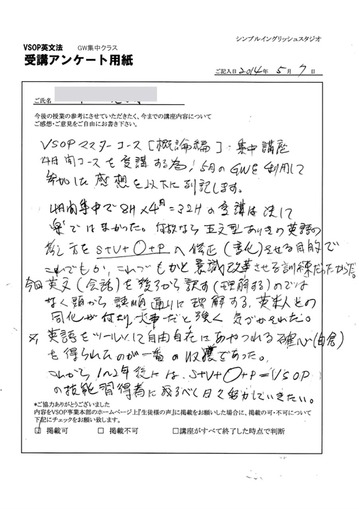 シンプルイングリッシュスタジオ
VSOP英文法 GW集中クラス
受講アンケート用紙
ご記入日 2014年 5月 7日
ご氏名
今後の授業の参考にさせていただきたく、今までの講座内容について
ご感想・ご意見をご自由にお書き下さい。
VSOPマスターコース[概論編]・集中講座
4日間コースを受講する為、5月のGWを利用して
参加した感想を以下に列記します。
4日間集中で8H×4日=32Hの受講は決して
楽ではなかった。なぜなら五文型ありきの英語の
考え方をS+V+O+Pへ修正(変化)させる目的で
これでもか、これでもかと意識改革させる訓練だったからだ。
今回英文(会話)を後ろから訳す(理解する)のでは
なく頭から語順通りに理解する、英米人との
同化が何より大事だと強く気づかされた。
英語をツールにし自由自在にあやつれる確心(自信)
を得られたのが一番の収穫であった。
これから1〜2年後には、S+V+O+P=VSOP
の技能習得者になるべく日々努力していきたい。
*ご協力ありがとうございました
内容をVSOP事業本部のホームページ上『生徒様の声』に掲載をお願いした場合、掲載の可・不可について
下記にチェックをお願い致します。
掲載可 □掲載不可 □講座がすべて終了した時点で判断